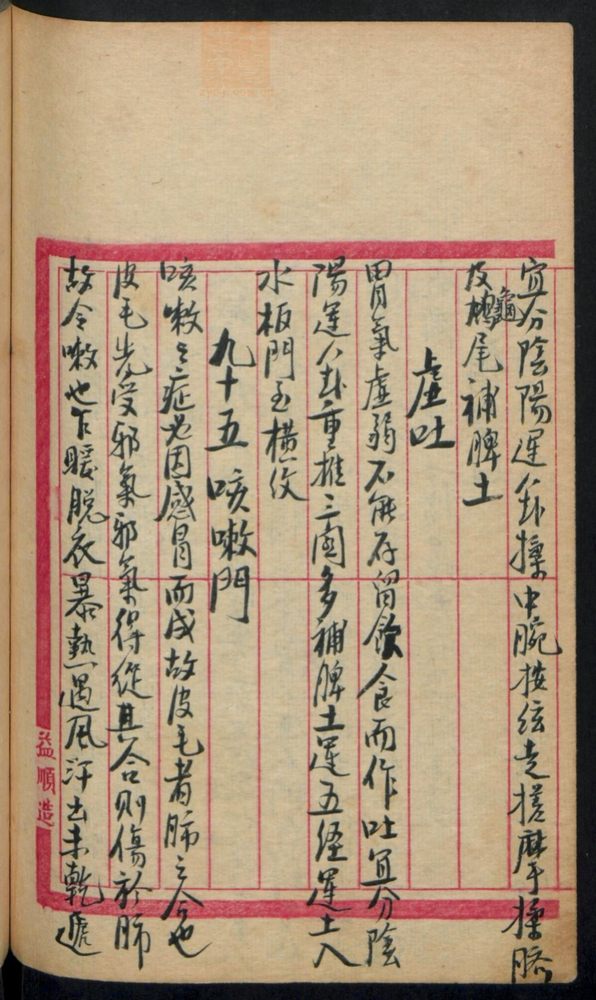 宜分陰陽運八卦揉中脘按弦走搓摩揉臍
及龜尾補脾土
虛吐
胃氣虛弱不能存留飲食而作吐宜分陰
陽運八卦重推三關多補脾土運五經運土入
水板門至橫紋
九十五咳嗽門
咳嗽之症必因感冒而成故皮毛者肺之合也
皮毛先受邪氣邪氣得從其合則傷於肺
故令嗽也乍暖脫衣暴熱遇風汗出未乾遽
益順造